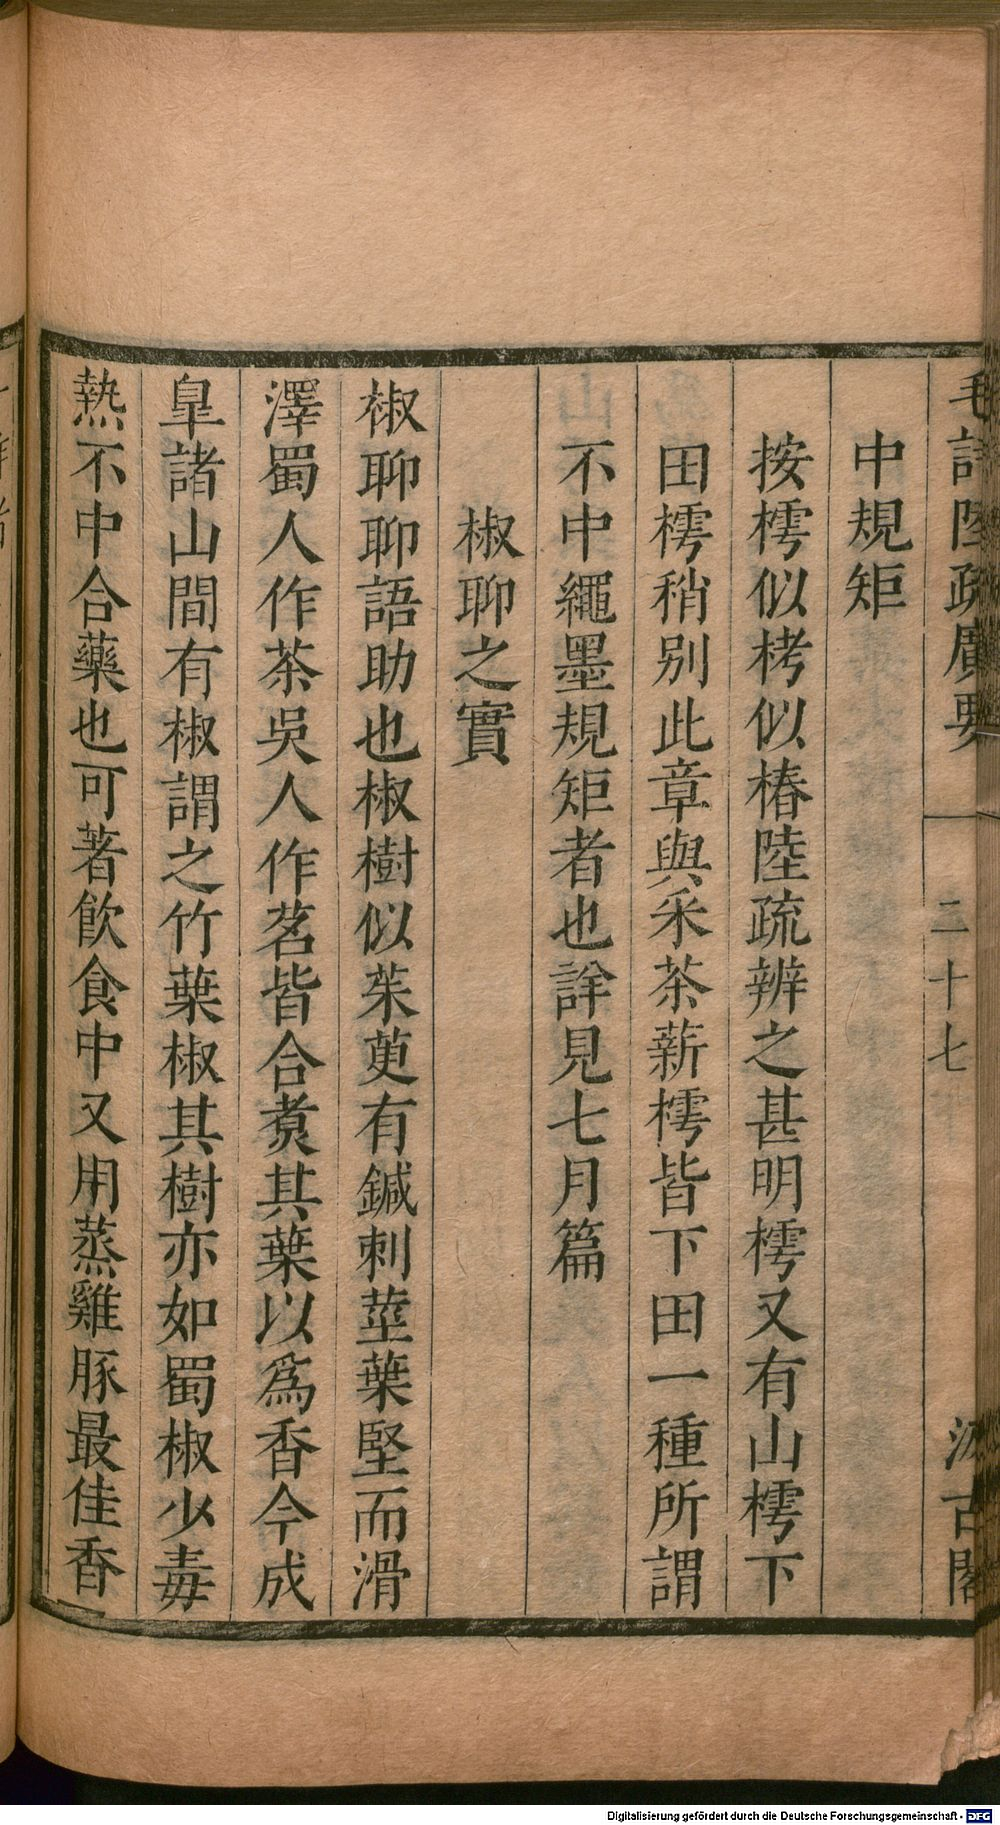 毛詩陸疏廣要 二十七 汲古閣
中規矩
按樗似栲似椿陸疏辨之甚明樗又有山樗下
田樗稍别此章與采茶薪樗皆下田一種所謂
不中繩墨規矩者也詳見七月篇
椒聊之實
椒聊聊語助也椒樹似茱萸有鍼刺莖葉堅而滑
澤蜀人作茶吳人作茗皆合煑其葉以爲香今成
臯諸山間有椒謂之竹葉椒其樹亦如蜀椒少毒
熱不中合藥也可著飲食中又用蒸雞豚最佳香
Digitalisierung gefördert durch die Deutsche Forschungsgemeinschaft - DFG